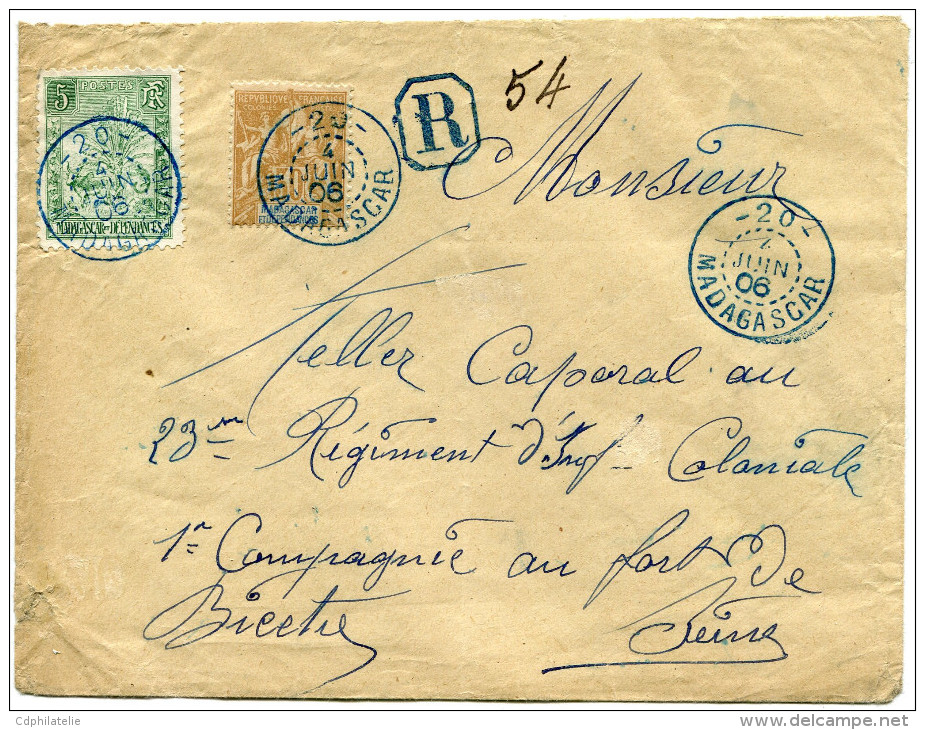 5 POSTES RF
MADAGASCAR et DÉPENDANCES
REPUBLIQUE FRANÇAISE
COLONIES
MADAGASCAR
ET DÉPENDANCES
-20-
4
JUIN
06
MADAGASCAR
R
54
Monsieur
-20-
4
JUIN
06
MADAGASCAR
Keller Caporal au
23me Régiment d'Inf Coloniale
1re Compagnie au fort de
Bicetre Seine
Cdphilatelie
www.delcampe.net